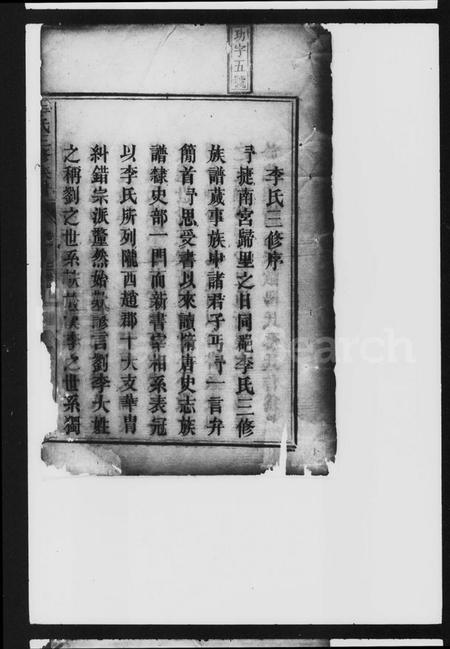 功字五號
李氏三修序
予捷南宮歸里之日同邑李氏三修
族譜蕆事族中諸君子丐予一言弁
簡首予思受書以來讀隋唐史志族
譜隸史部一門而新書宰相系表冠
以李氏所列隴西趙郡十大支華胄
糾錯宗派釐然始 諺言劉李大姓
之稱劉之世系 之世系獨
Search